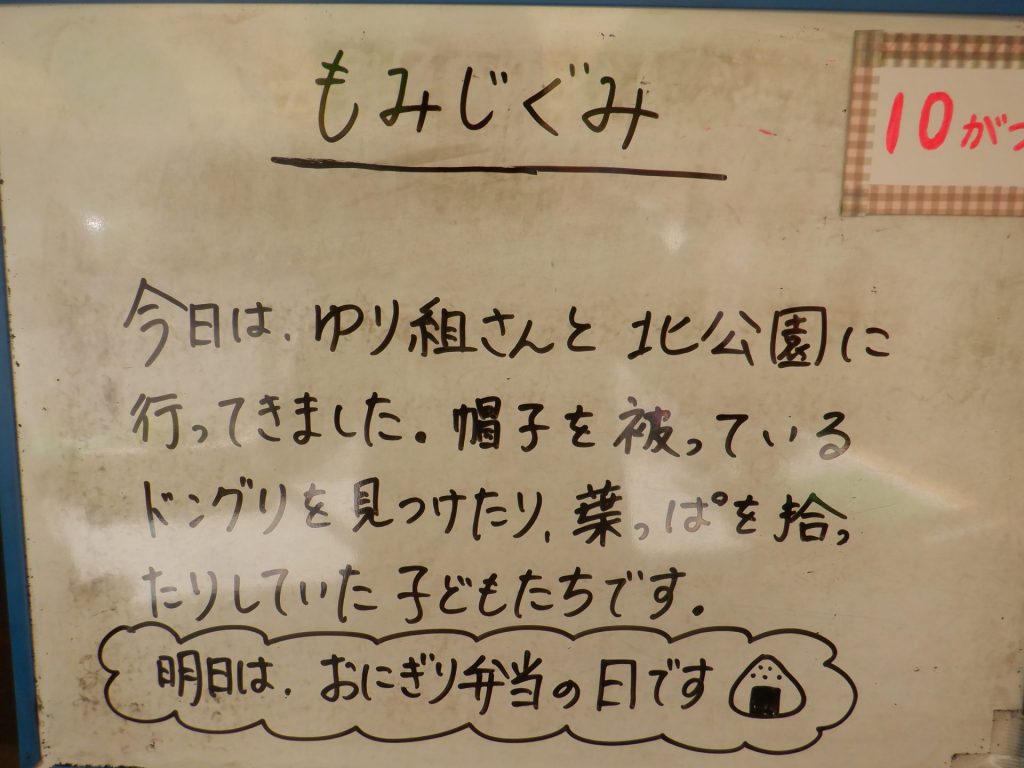 もみじぐみ
10がつ
今日は、ゆり組さんと北公園に
行ってきました。帽子を被っている
ドングリを見つけたり、葉っぱを拾っ
たりしていた子どもたちです。
明日は、おにぎり弁当の日です